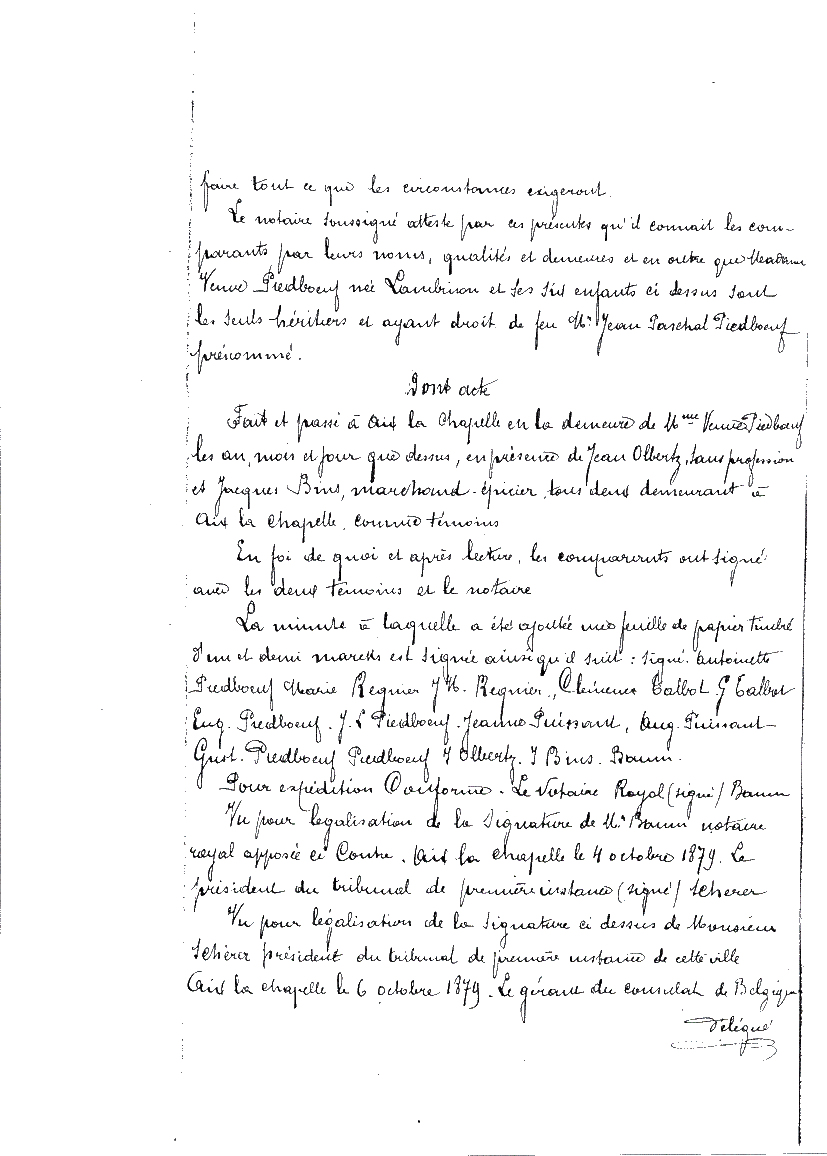 faire tout ce que les circonstances exigeront.
Le notaire soussigné atteste par ces présentes qu'il connait les com-
parants par leurs noms, qualités et demeures et en outre que Madame
Veuve Piedboeuf née Lambinon et ses six enfants ci dessus sont
les seuls héritiers et ayant droit de feu Mr Jean Paschal Piedboeuf
prénommé.
Dont acte
Fait et passé à Aix la Chapelle en la demeure de Mme Veuve Piedboeuf
les an, mois et jour que dessus, en présence de Jean Olbertz, sans profession
et Jacques Bins, marchand-épicier, tous deux demeurant à
Aix la Chapelle, comme témoins
En foi de quoi et après lecture, les comparants ont signé
avec les deux témoins et le notaire
La minute à laquelle a été ajoutée une feuille de papier timbré
d'un et demi marcks est signée ainsi qu'il suit : signé. Antoinette
Piedboeuf Marie Regnier J H. Regnier, Clémence Talbot G Talbot
Eug. Piedboeuf. J. L Piedboeuf. Jeanne Puissant, Aug. Puissant
Gust. Piedboeuf Piedboeuf J Olbertz. J Bins. Baum.
Pour expédition Conforme. Le Notaire Royal (signé) Baum
Vu pour légalisation de la signature de Mr Baum notaire
royal apposée ci Contre. Aix la chapelle le 4 octobre 1879. Le
président du tribunal de première instance (signé) Scherer
Vu pour légalisation de la signature ci dessus de Monsieur
Scherer président du tribunal de première instance de cette ville
Aix la chapelle le 6 octobre 1879. Le gérant du consulat de Belgique
Délégué